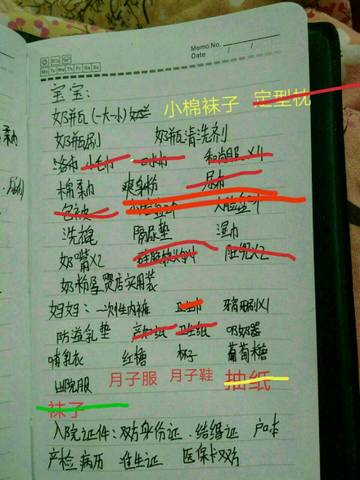 Memo No.
Date / /
Mo Tu We Th Fr Sa Su
宝宝:
奶瓶(一大一小)
小棉袜子 定型枕
奶瓶刷 奶瓶清洗剂
浴巾 小毛巾 口水巾 和尚服X4
棉柔巾 爽身粉 尿布
包被
洗衣皂 隔尿垫 湿巾
奶嘴X2 肚兜X2
奶粉享婴店实用装
妈妈: 一次性内裤 卫生巾
防溢乳垫 产妇纸 卫生纸 吸奶器
哺乳衣 红糖 杯子 葡萄糖
出院服 月子服 月子鞋 抽纸
袜子
入院证件: 双方身份证、结婚证 户口本
产检病历 准生证 医保卡双方